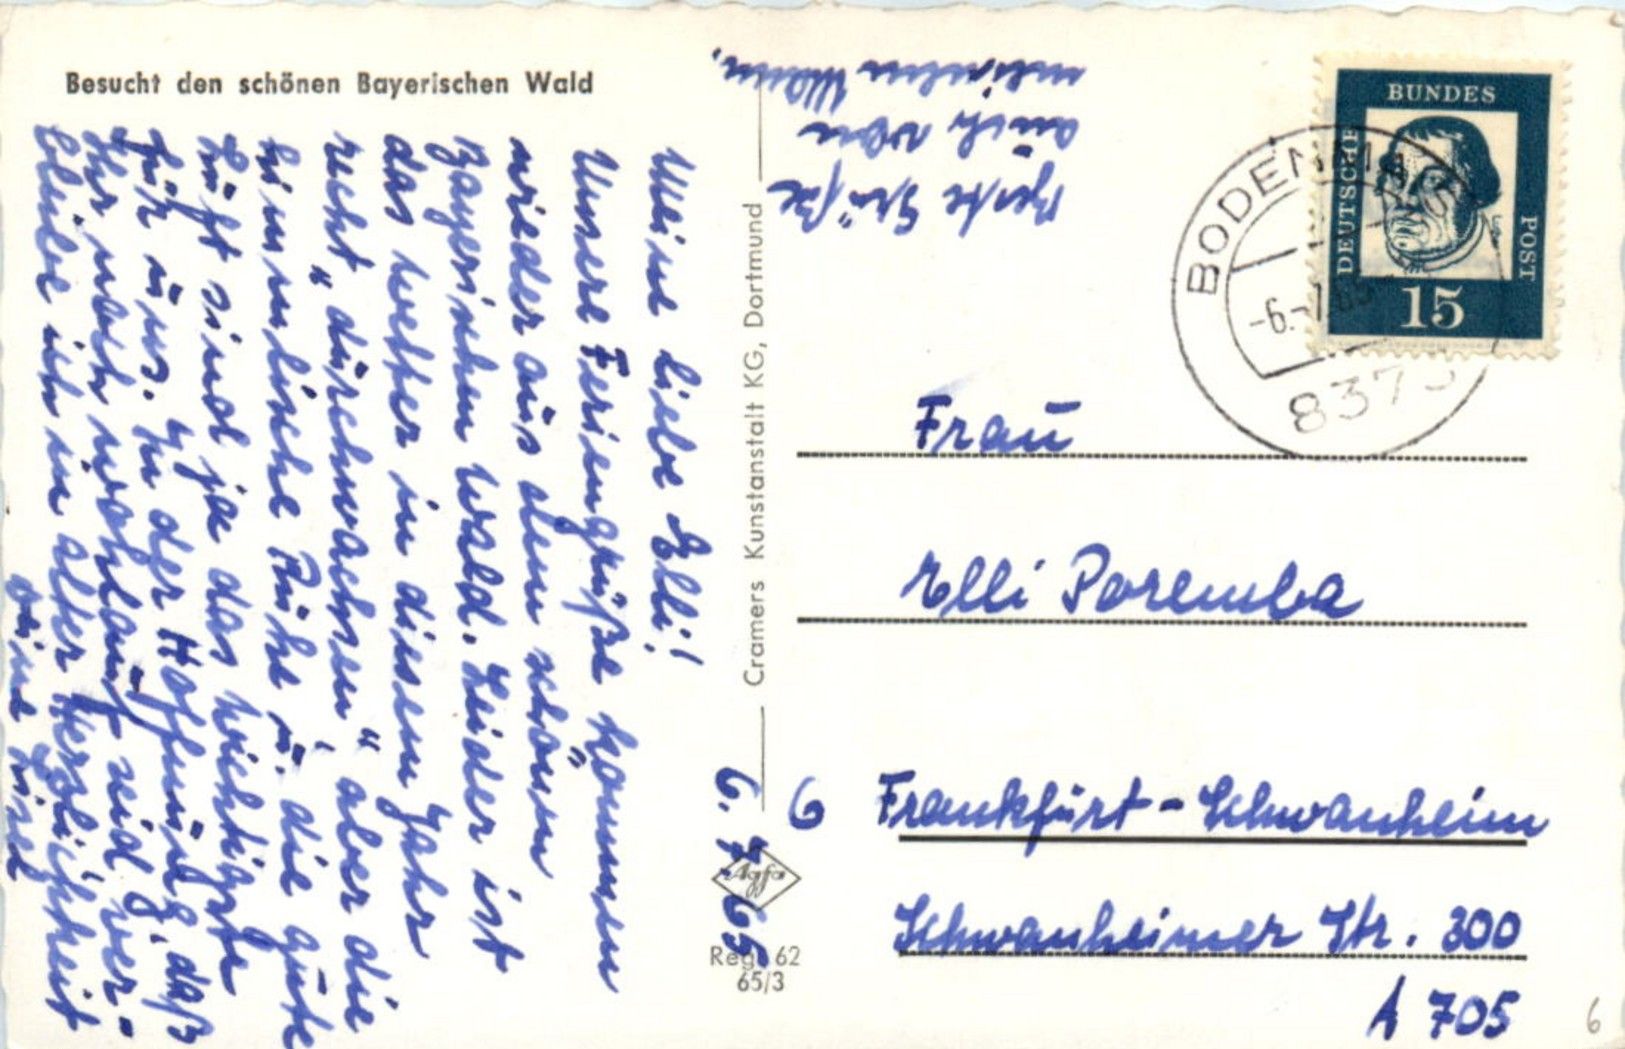 Besucht den schönen Bayerischen Wald
6.7.65
Meine liebe Elli!
Unsere Feriengrüße kommen
wieder aus dem schönen
Bayerischen Wald. Leider ist
das Wetter in diesem Jahr
recht "durchwachsen", aber die
himmlische Ruhe u. die gute
Luft sind ja das Wichtigste
für uns. In der Hoffnung, daß
Ihr noch wohlauf seid, ver-
bleibe ich in alter Herzlichkeit
Deine Lisel
Beste Grüße
auch von
meinem Mann.
Cramers Kunstanstalt KG, Dortmund
Agfa
Reg. 62
65/3
DEUTSCHE
BUNDES
POST
15
BODENMAIS
-6.-7.65
8373
Frau
Elli Poremba
6 Frankfurt-Schwanheim
Schwanheimer Str. 300
A 705
6